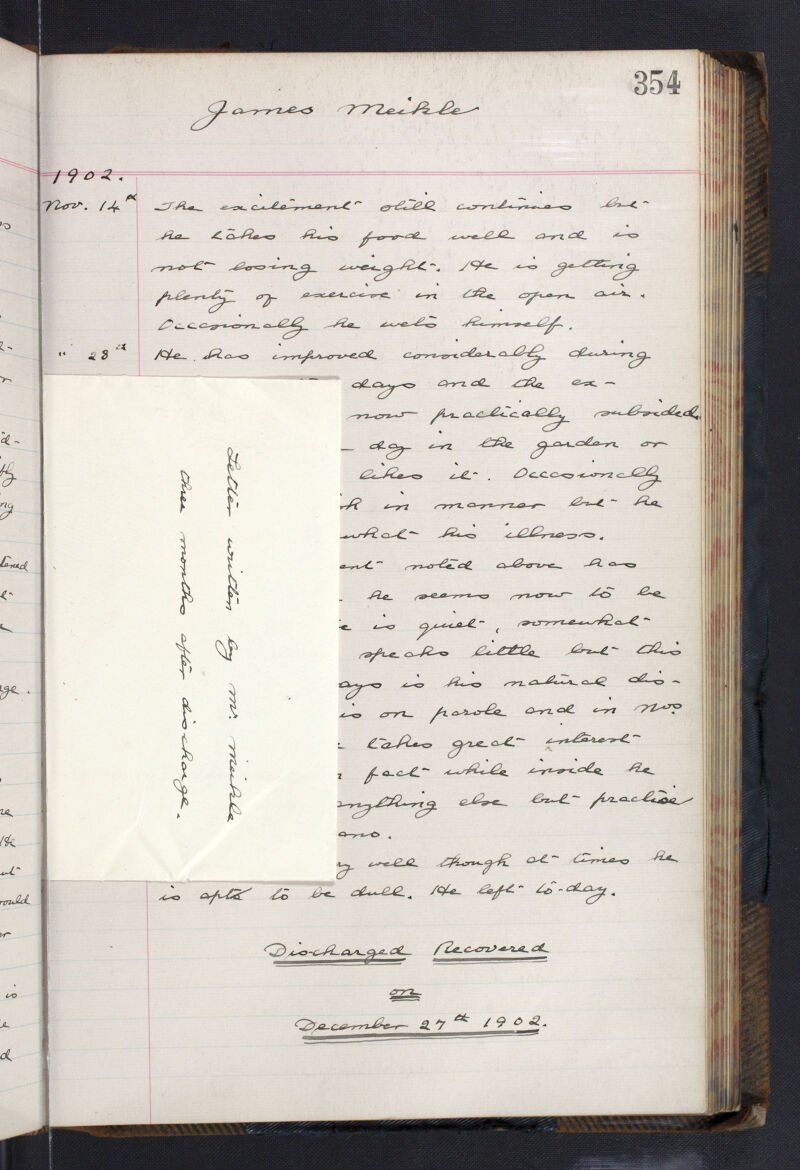 354
James Meikle
1902.
Nov. 14th The excitement still continues but
he takes his food well and is
not losing weight. He is getting
plenty of exercise in the open air.
Occasionally he wets himself.
" 28th He has improved considerably during
days and the ex-
now practically subsided
day in the garden or
likes it. Occasionally
in manner but he
what his illness.
noted above has
he seems now to be
is quiet, somewhat
speaks little but this
is his natural dis-
is on parole and in No.
takes great interest
fact while inside he
anything else but practise
well though at times he
is apt to be dull. He left to-day.
Discharged Recovered
on
December 27th 1902.
Letter written by Mr. Meikle
three months after discharge.